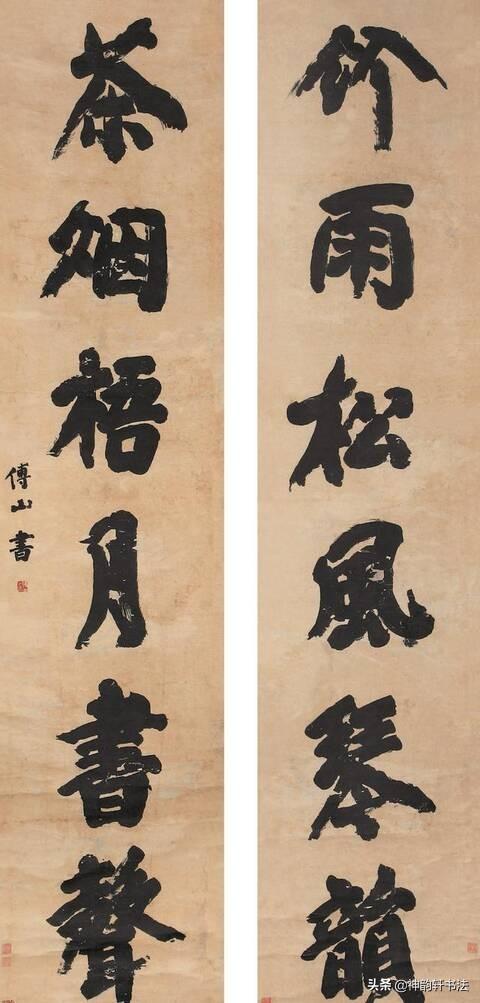 竹雨松風琴韻
茶烟梧月書聲
傅山書
头条 @神韵轩书法